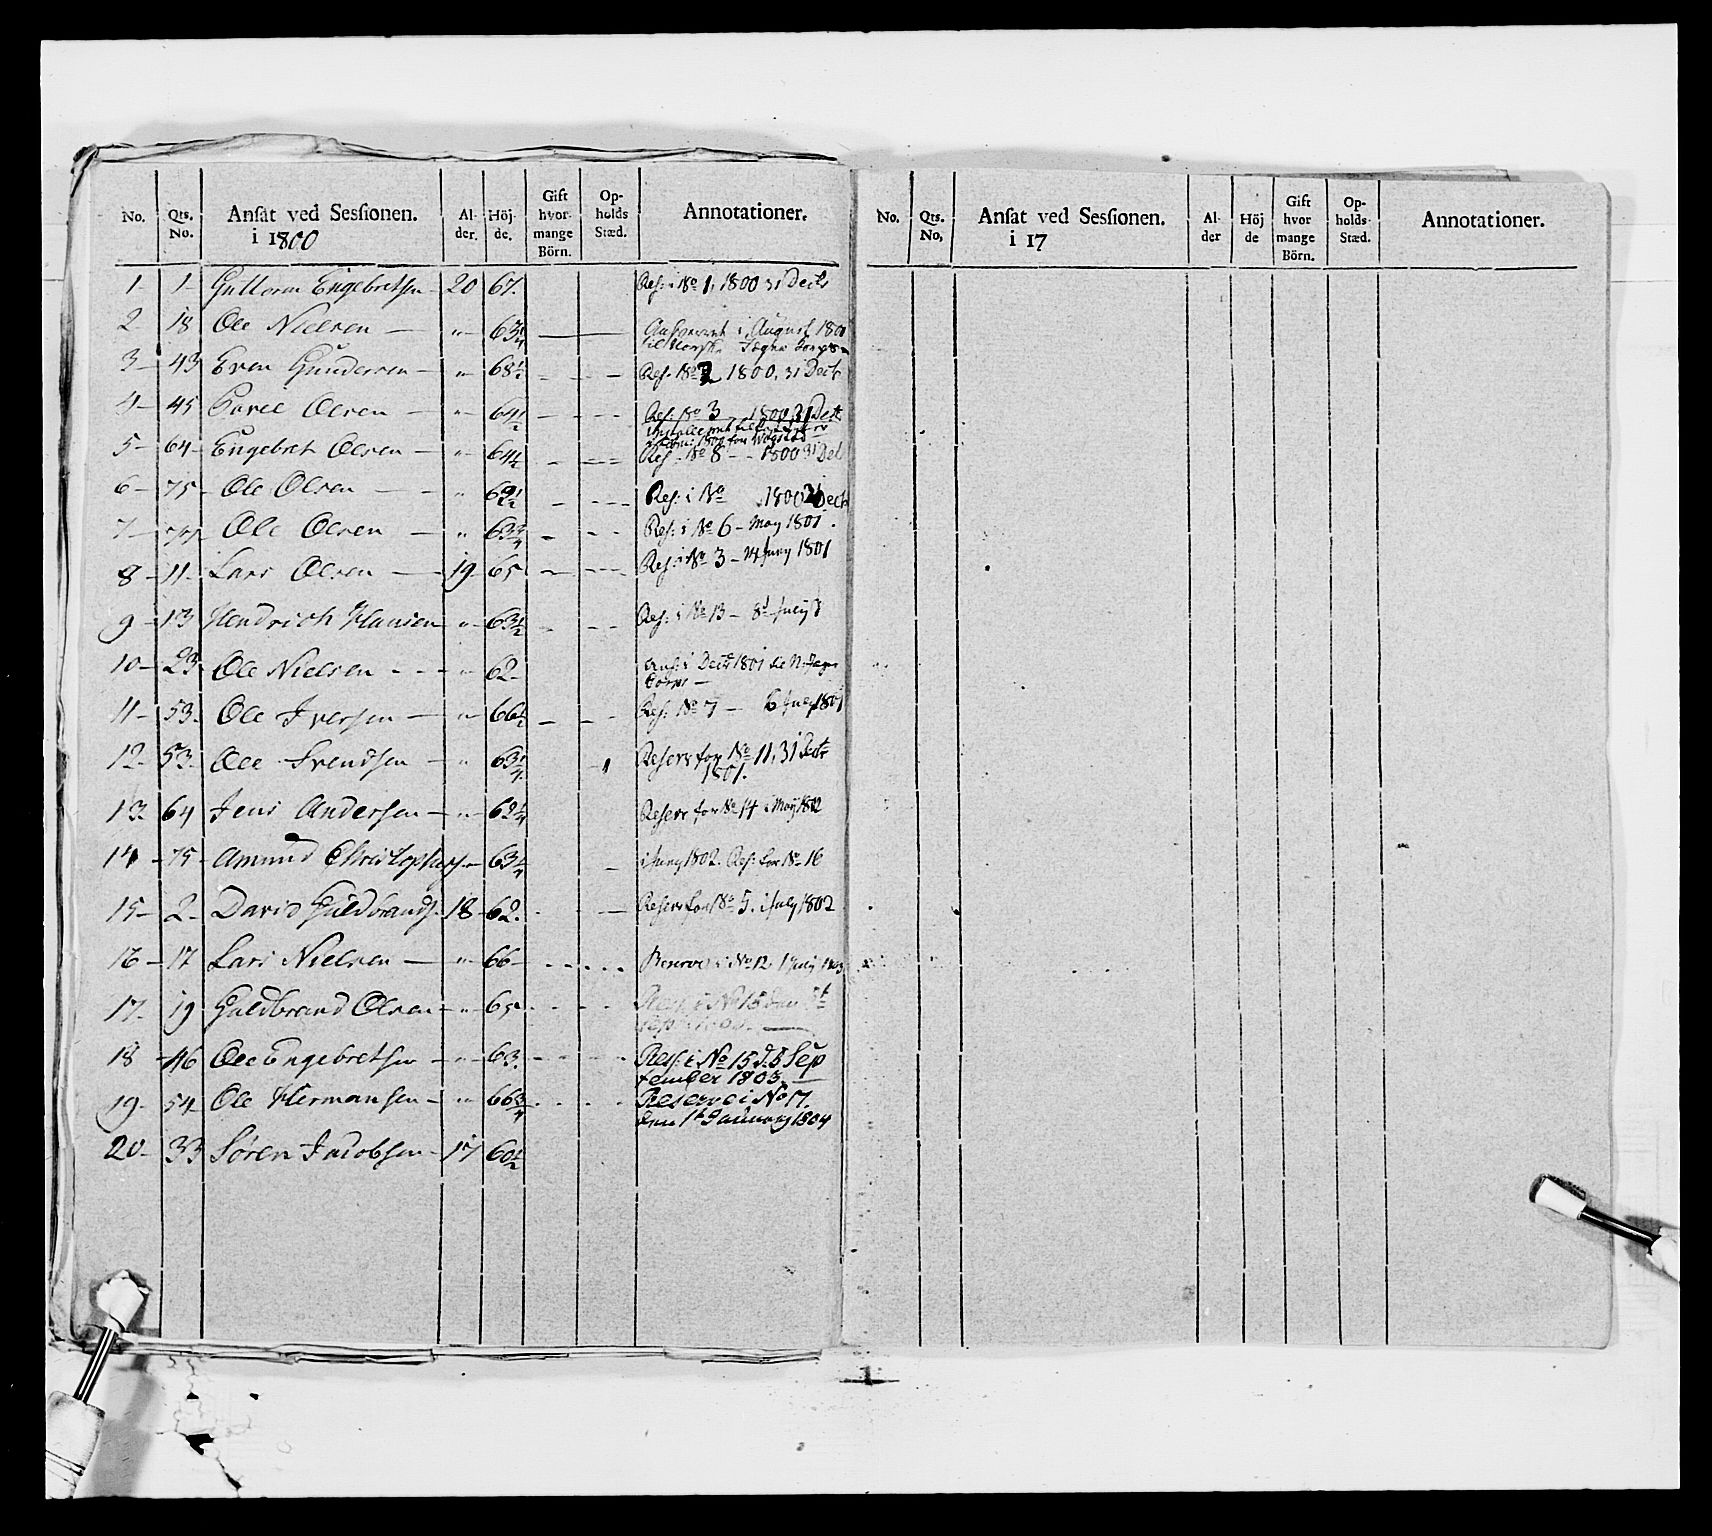 No. Qts. No. Ansat ved Sessionen. i 1800 Al- der. Höj- de. Gift hvor- mange Börn. Op- holds Stæd. Annotationer.
1- 1- Guttorm Engebretsen 20 67. Res: i No 1, 1800 31 Decbr
2- 18 Ole Nielsen — " 63 1/4 — i August 1800
til Norske Jæger Corps
3- 43 Even Gundersen - " 68 1/2 - - - Res. No 2 1800, 31 Decbr
4- 45 Povel Olsen — " 64 1/2 - - - Res: No 3 — 1800 31 Decbr
5- 64- Engebret Olsen — " 64 1/2 - - - Res: No 8 - - 1800 31 Dec
6- 75- Ole Olsen — - " 69 1/2 - - - Res: i No 1800 Decbr
7- Ole Olsen — " 63 3/4 - - - Res: i No 6 - May 1801.
8- 11- Lars Olsen — 19- 65 - - - Res: i No 3 - Juny 1801
9- 13 Hendrich Hansen " 63 1/2 - - - Res: i No 13 - 8d July
10- 23 Ole Nielsen - - - " 62- i Decbr 1801 N. Jæger
Corps —
11- 53- Ole Iversen — " 66 1/2 - - - Res: No 7 — 6 July 1801
12- 53- Ole Svendsen - " 63 1/4 Reserv for No 11, 31 Decbr
1801.
13- 64 Jens Andersen — " 62 1/4 Reserv for No 14 i May 1802
14 - 75- Amund Christophers. — 63 1/4 i Juny 1802. Res: for No 16
15- 2- David Guldbrands. 18- 62. Reserv for No 5. i July 1802
16- 17 Lars Nielsen — " 66- - - - Reserve i No 12 July 1803
17- 19 Guldbrand Olsen - " 65 - - - Res. i No 18
18 - 46 Ole Engebretsen - " 63. - - - Res: i No 15 d. 5 Sep
tember 1803. —
19- 54- Ole Hermansen - " 66 3/4 - - - Reserve i No 17.
den 1t January 1804
20- 33 Sören Jacobsen - 17 60 1/2
No. Qts. No, Ansat ved Sessionen. i 17 Al- der Höj de Gift hvor mange Börn. Op- holds- Stæd. Annotationer.